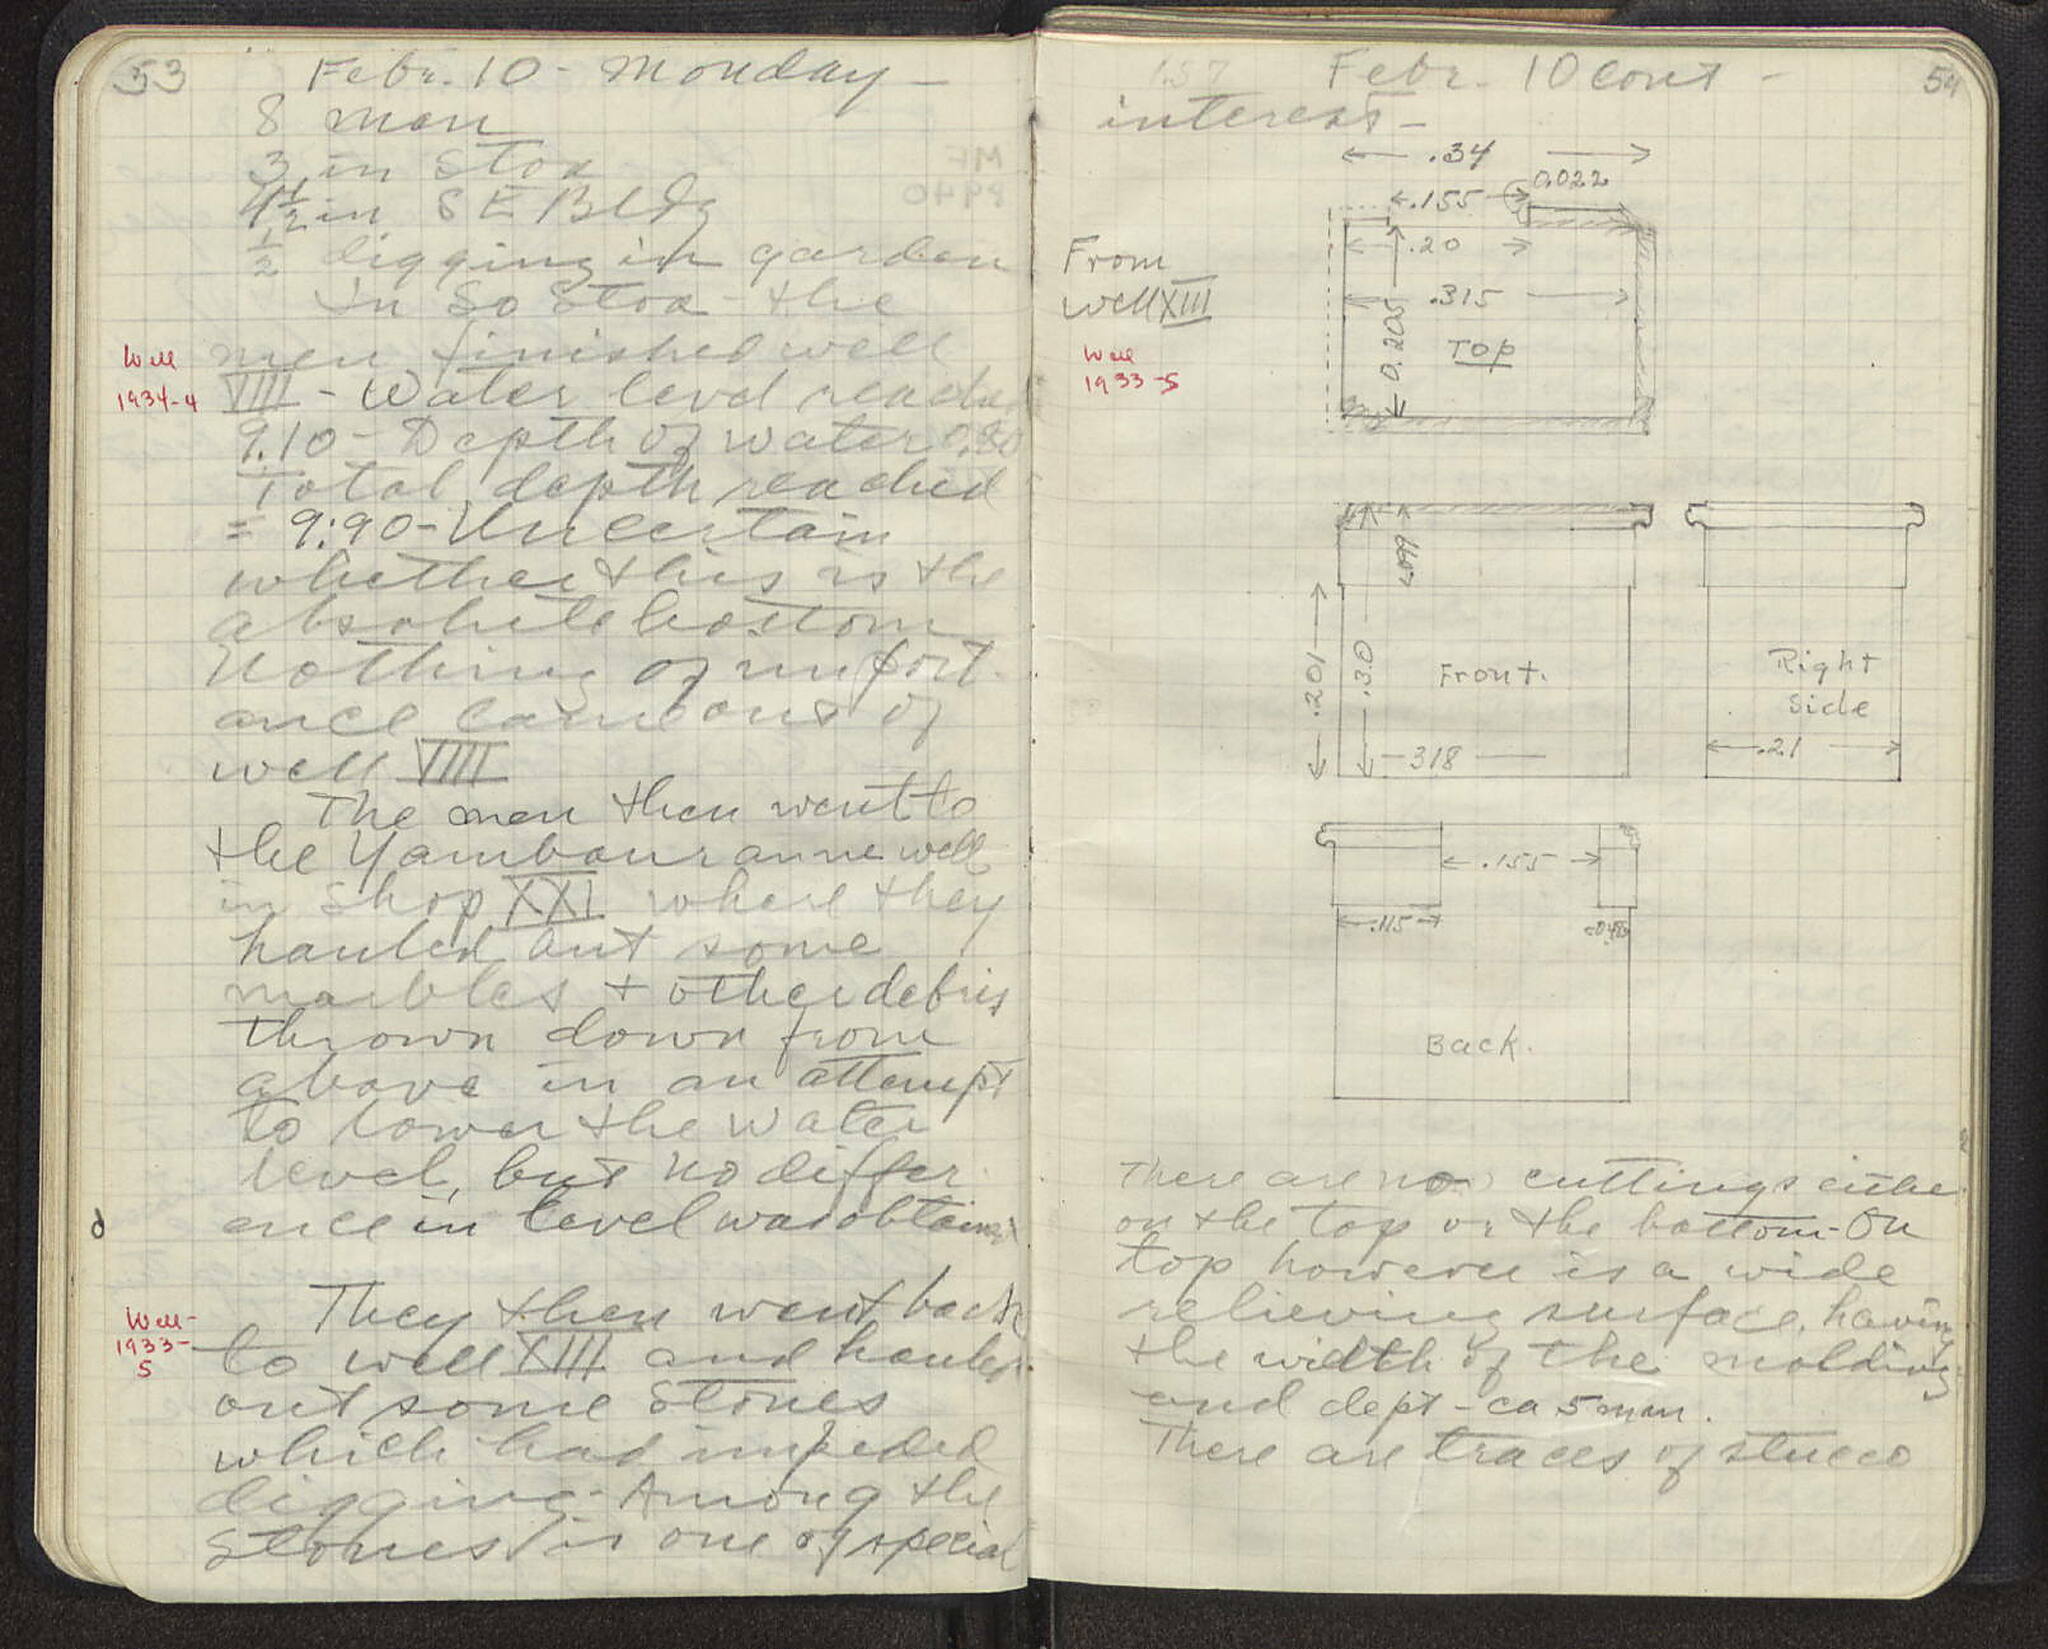 53
Febr. 10 - Monday -
8 men
3 in Stoa
4½ in SE Bldg
½ digging in garden
In So Stoa - the
men finished well
Well
1934-4
VIII - Water level reached
9.10 - Depth of water 0.80
Total depth reached
= 9:90 - Uncertain
whether this is the
absolute bottom
Nothing of import-
ance came out of
well VIII
The men then went to
the Yambouranne well
in Shop XXI where they
hauled out some
marbles + other debris
thrown down from
above in an attempt
to lower the water
level, but no differ
ence in level was obtained
They then went back
Well-
1933-
5
to well XIII and hauled
out some stones
which had impeded
digging - Among the
stones is one of special
54
Febr. 10 cont -
interest -
.34
0.022
.155
.20
From
well XIII
.315
0.205
Top
Well
1933-5
.099
.201
.30
Front.
Right
Side
318
.21
.155
.115
.048
Back.
There are no cuttings either
on the top or the bottom - On
top however is a wide
relieving surface, having
the width of the molding
and dept - ca 5 mm.
There are traces of stucco